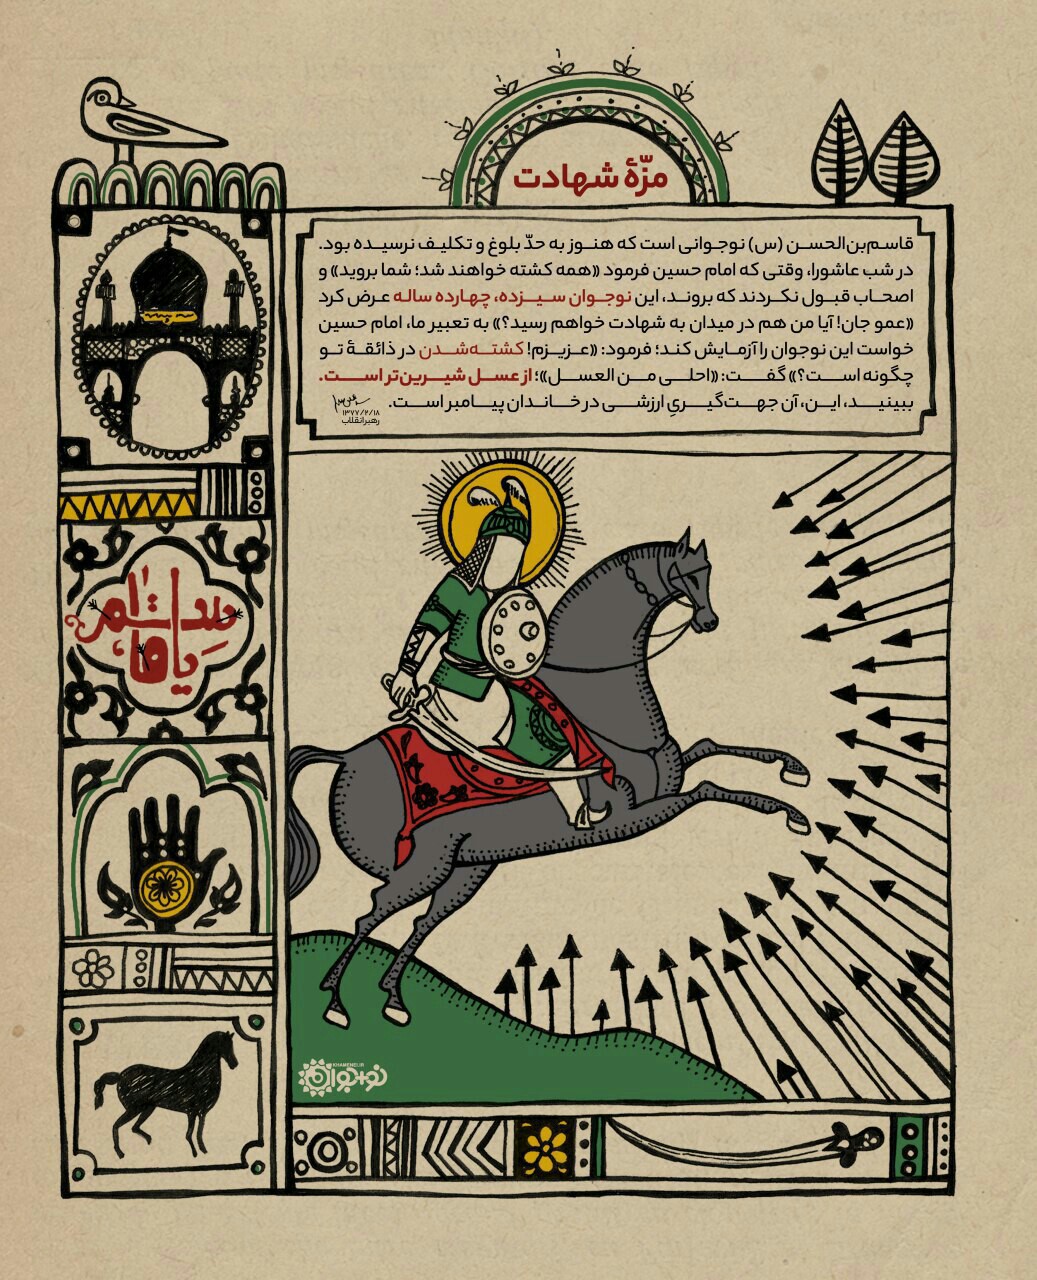 مزّهٔ شهادت
قاسم‌بن‌الحسن (س) نوجوانی است که هنوز به حدّ بلوغ و تکلیف نرسیده بود.
در شب عاشورا، وقتی که امام حسین فرمود «همه کشته خواهند شد؛ شما بروید» و
اصحاب قبول نکردند که بروند، این نوجوان سیزده، چهارده ساله عرض کرد
«عمو جان! آیا من هم در میدان به شهادت خواهم رسید؟» به تعبیر ما، امام حسین
خواست این نوجوان را آزمایش کند؛ فرمود: «عزیزم! کشته‌شدن در ذائقهٔ تو
چگونه است؟» گفت: «احلی من العسل»؛ از عسل شیرین‌تر است.
ببینید، این، آن جهت‌گیریِ ارزشی در خاندان پیامبر است.
۱۳۷۷/۲/۱۸
رهبر انقلاب
KHAMENEI.IR
نوجوان